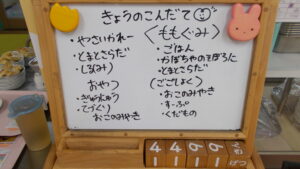 きょうのこんだて
・やさいかれー
・とまとさらだ
・しる(みそ)
おやつ
・ぎゅうにゅう
・てづくり
おこのみやき
<ももぐみ>
・ごはん
・かぼちゃのそぼろに
・とまとさらだ
(ごごしょく)
・おこのみやき
・すーぷ
・くだもの